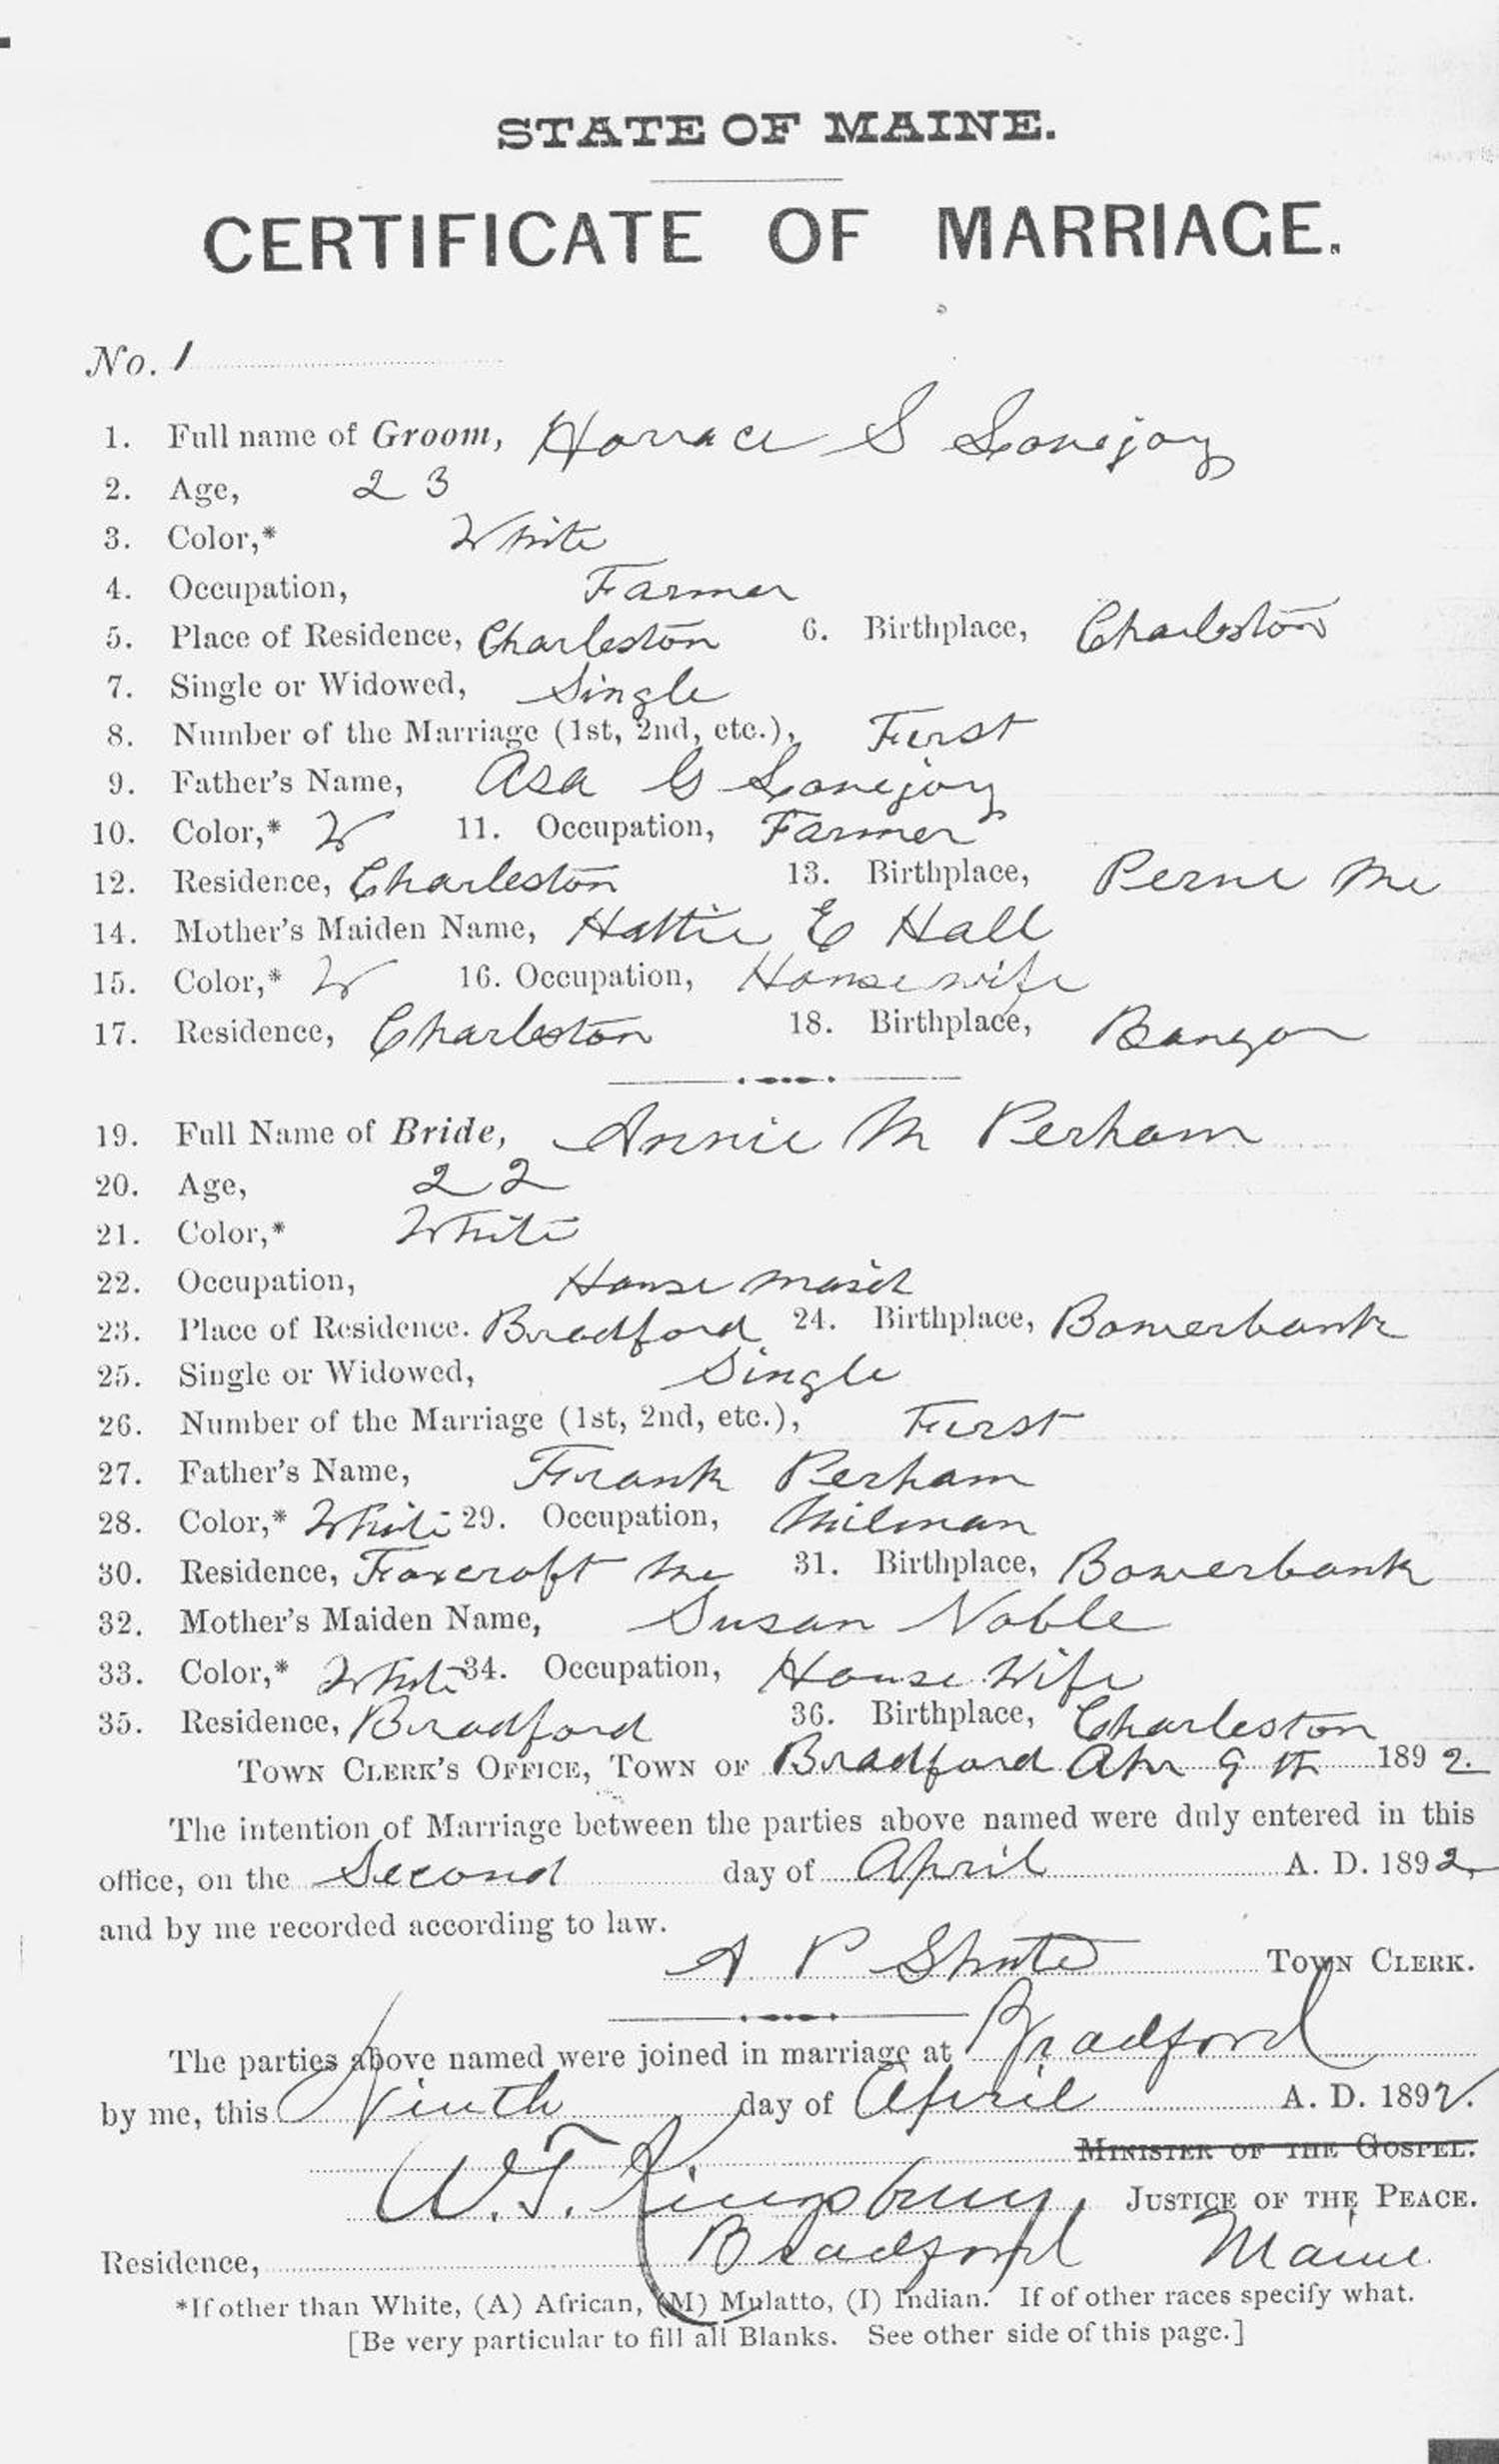 STATE OF MAINE.
CERTIFICATE OF MARRIAGE.
No. 1
1. Full name of Groom, Horrace S Lovejoy
2. Age, 23
3. Color,* White
4. Occupation, Farmer
5. Place of Residence, Charleston 6. Birthplace, Charleston
7. Single or Widowed, Single
8. Number of the Marriage (1st, 2nd, etc.), First
9. Father's Name, Asa G Lovejoy
10. Color,* W 11. Occupation, Farmer
12. Residence, Charleston 13. Birthplace, Me
14. Mother's Maiden Name, Hattie E Hall
15. Color,* W 16. Occupation, Housewife
17. Residence, Charleston 18. Birthplace, Bangor
19. Full Name of Bride, Annie M Perham
20. Age, 22
21. Color,* White
22. Occupation, House maid
23. Place of Residence. Bradford 24. Birthplace, Bowerbank
25. Single or Widowed, Single
26. Number of the Marriage (1st, 2nd, etc.), First
27. Father's Name, Frank Perham
28. Color,* White 29. Occupation, Milman
30. Residence, Foxcroft Me 31. Birthplace, Bowerbank
32. Mother's Maiden Name, Susan Noble
33. Color,* White 34. Occupation, House Wife
35. Residence, Bradford 36. Birthplace, Charleston
TOWN CLERK'S OFFICE, TOWN OF Bradford Apr 9th 1892.
The intention of Marriage between the parties above named were duly entered in this
office, on the Second day of April A. D. 1892,
and by me recorded according to law.
A P Shute TOWN CLERK.
The parties above named were joined in marriage at Bradford
by me, this Ninth day of April A. D. 1892.
MINISTER OF THE GOSPEL.
W. T. Kingsbury, JUSTICE OF THE PEACE.
Residence, Bradford Maine
*If other than White, (A) African, (M) Mulatto, (I) Indian. If of other races specify what.
[Be very particular to fill all Blanks. See other side of this page.]